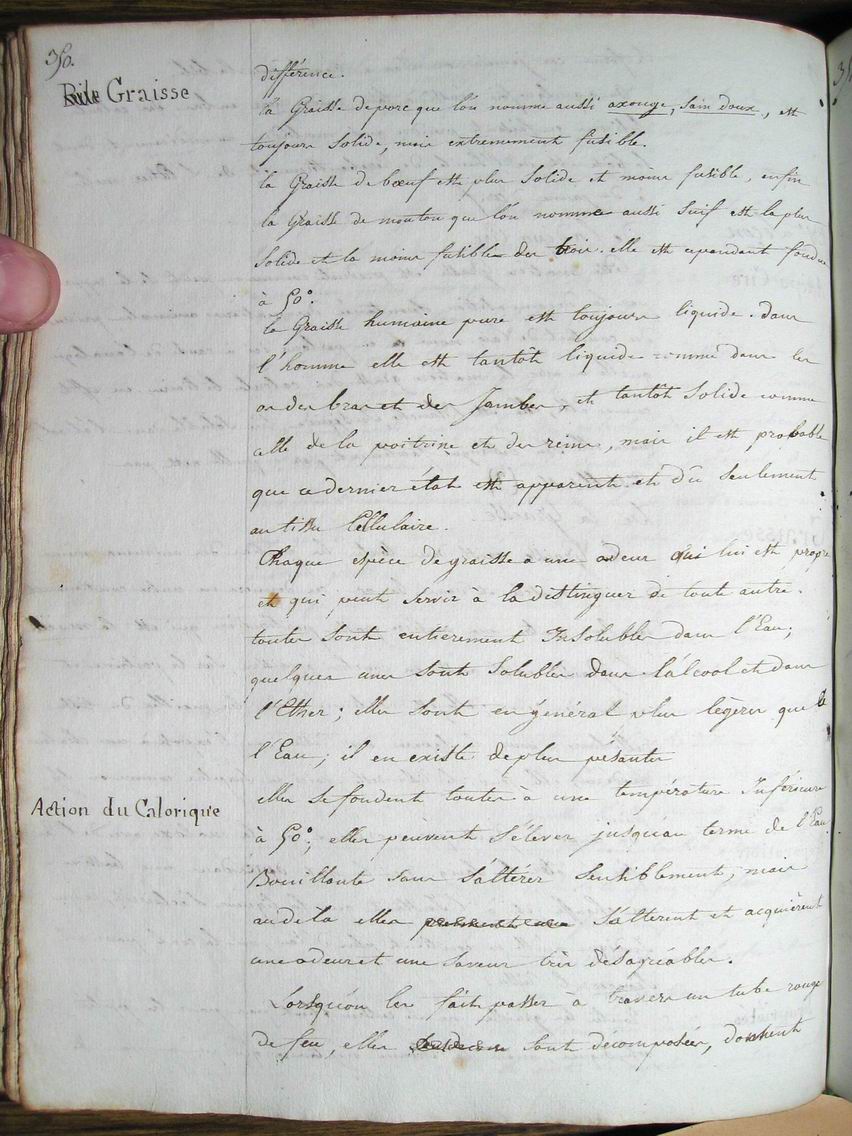 350.
Bile Graisse
différence.
la Graisse de porc que l'on nomme aussi axonge, Sain doux, est
toujours Solide, mais extremement fusible.
la Graisse de bœuf est plus Solide et moins fusible, enfin
la Graisse de mouton que l'on nomme aussi Suif est la plus
Solide et la moins fusible des trois. elle est cependant fondue
à 50°.
la Graisse humaine pure est toujours liquide. dans
l'homme elle est tantôt liquide comme dans les
os des bras et des Jambes, et tantôt Solide comme
celle de la poitrine et des reins, mais il est probable
que ce dernier état est apparent et dû Seulement
au tissu Cellulaire.
Chaque espèce de graisse a une odeur qui lui est propre
et qui peut Servir à la distinguer de toute autre.
toutes Sont entierement Insolubles dans l'Eau;
quelques unes Sont Solubles dans l'alcool et dans
l'Ether; elles Sont en général plus légères que
l'Eau; il en existe de plus pésantes
Action du Calorique
elles se fondent toutes à une température Inférieure
à 50°; elles peuvent S'élever jusqu'au terme de l'Eau
Bouillante sans S'altérer Sensiblement, mais
au delà elles prennent une S'alterent et acquièrent
une odeur et une Saveur très désagréables.
Lorsqu'on les fait passer à travers un tube rouge
de feu, elles Sont décomposées, donnent